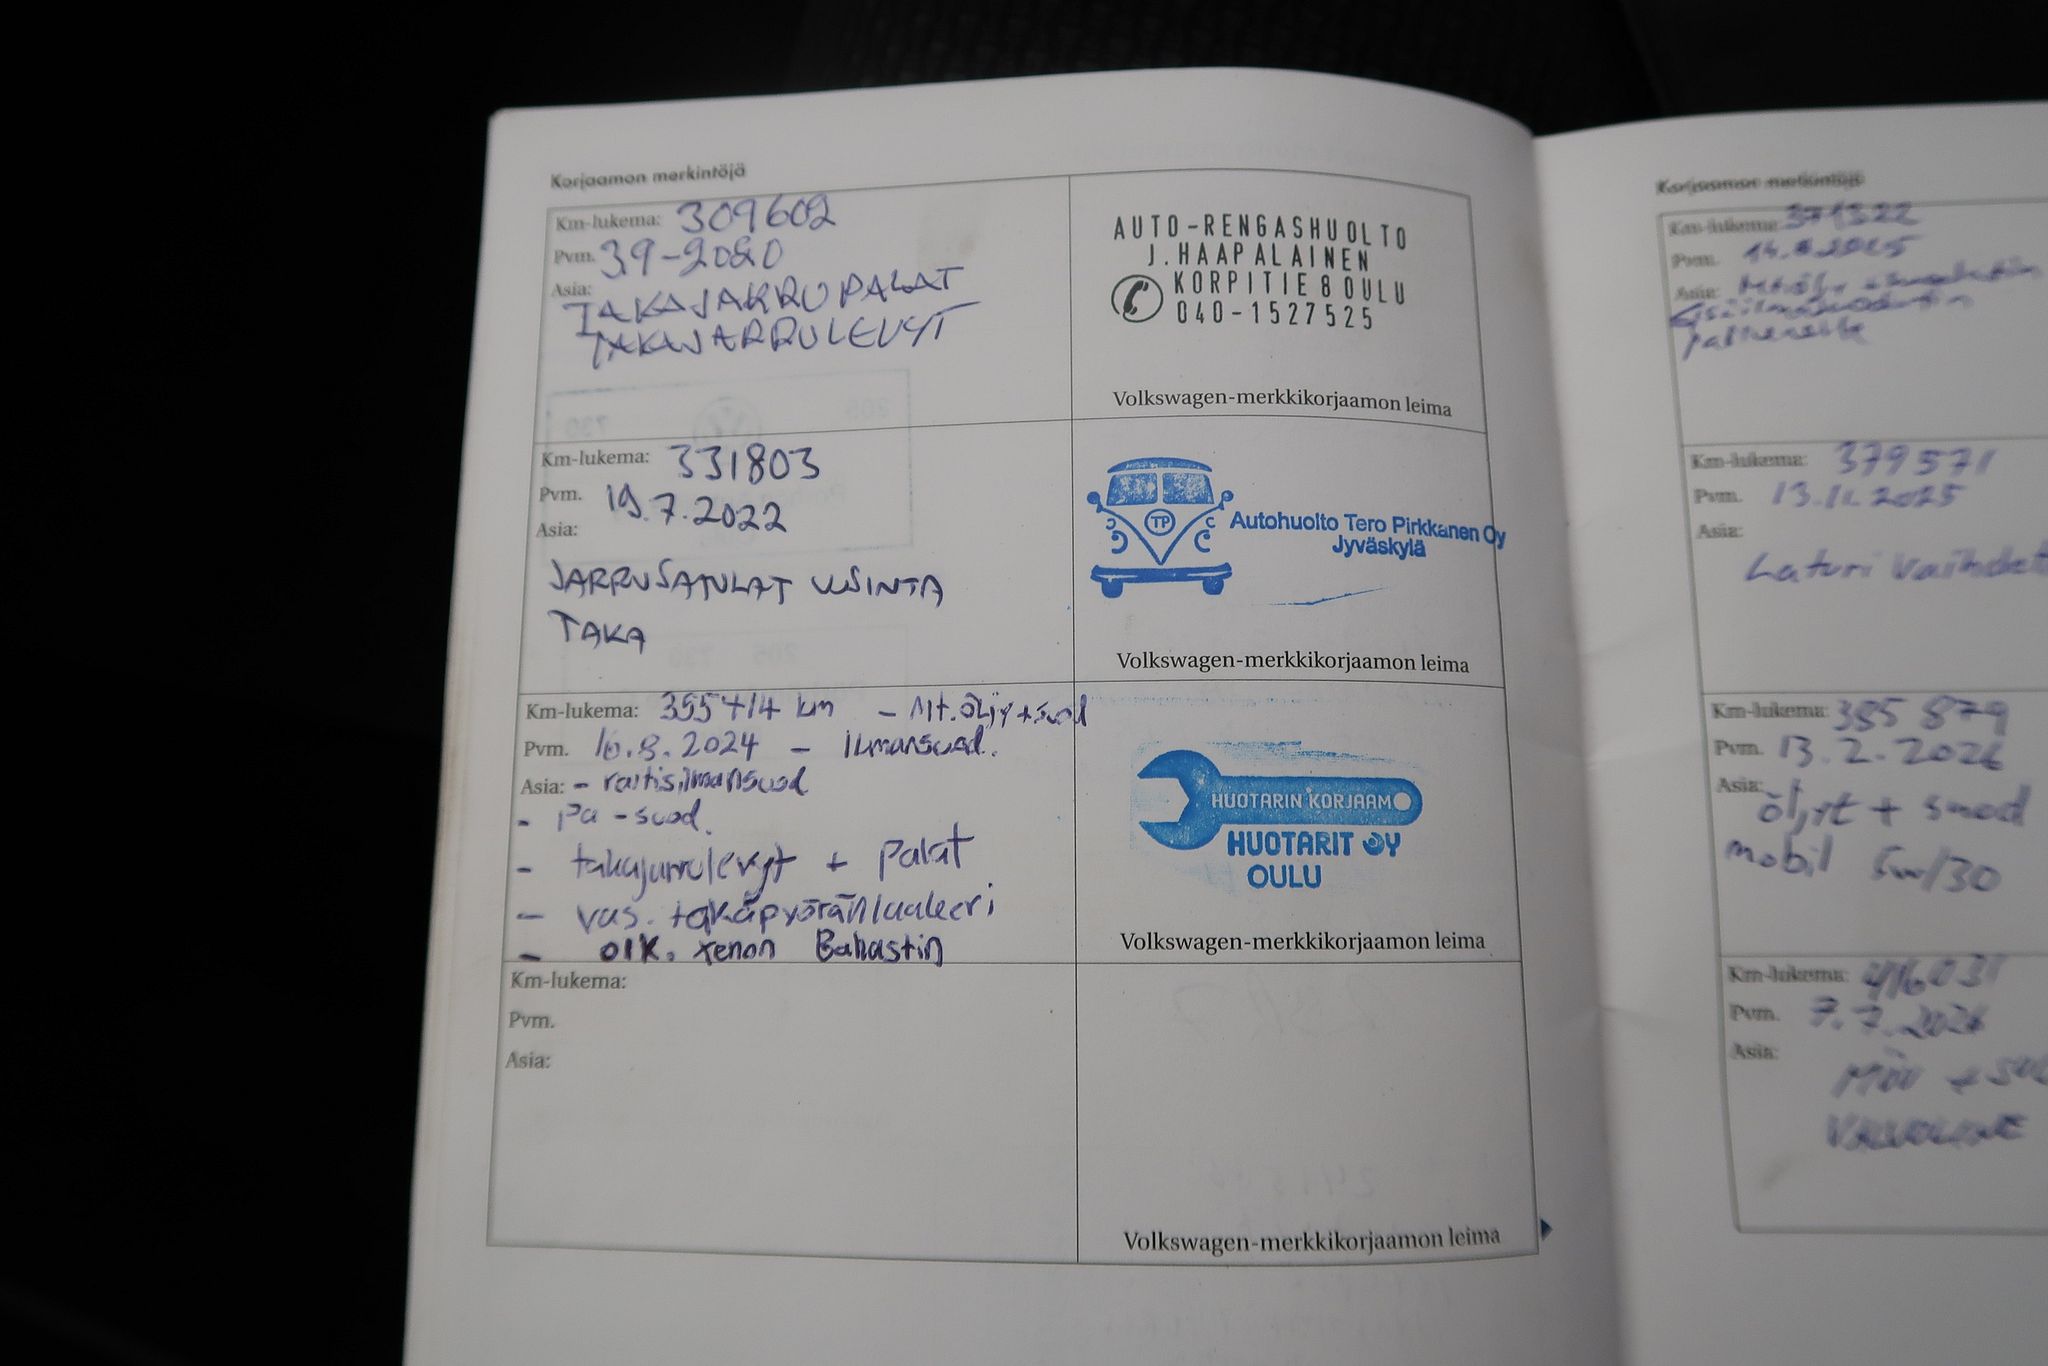 Korjaamon merkintöjä
Km-lukema: 309602
Pvm. 3.9-2020
Asia:
TAKAJARRUPALAT
TAKAJARRULEVYT
AUTO-RENGASHUOLTO
J. HAAPALAINEN
KORPITIE 8 OULU
040-1527525
Volkswagen-merkkikorjaamon leima
Km-lukema: 331803
Pvm. 19.7.2022
Asia:
JARRUSATULAT UUSINTA
TAKA
TP
Autohuolto Tero Pirkkanen Oy
Jyväskylä
Volkswagen-merkkikorjaamon leima
Km-lukema: 355414 km - Mt.öljy+suod
Pvm. 16.8.2024 - ilmansuod.
Asia: - raitisilmansuod
- pa-suod.
- takajarrulevyt + palat
- vas. takapyöränlaakeri
- oik. xenon Ballastin
HUOTARIN KORJAAMO
HUOTARIT OY
OULU
Volkswagen-merkkikorjaamon leima
Km-lukema:
Pvm.
Asia:
Volkswagen-merkkikorjaamon leima
Korjaamon merkintöjä
Km-lukema: 371322
Pvm. 14.8.2025
Asia:
Km-lukema: 379571
Pvm. 13.11.2025
Asia:
Laturi vaihdet
Km-lukema: 385 879
Pvm. 13.2.2026
Asia:
öljyt + suod
mobil 5w/30
Km-lukema: 416031
Pvm. 7.7.2026
Asia:
VALVOLINE